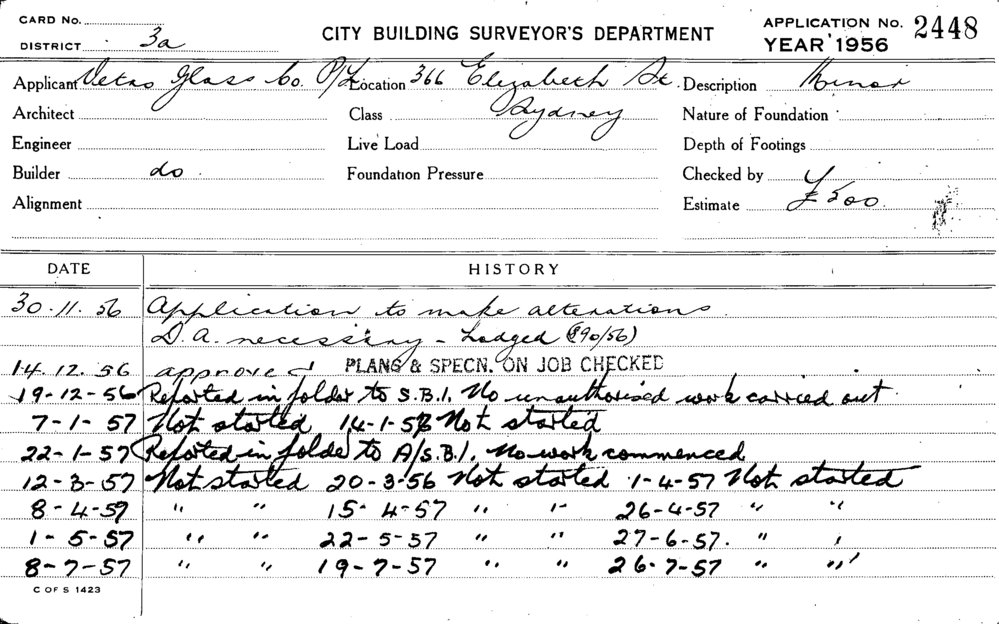 CARD No.
DISTRICT 3a
CITY BUILDING SURVEYOR'S DEPARTMENT
APPLICATION No. 2448
YEAR 1956
Applicant Vetro Glass Co. P/L Location 366 Elizabeth St. Description Minor
Architect Class Sydney Nature of Foundation
Engineer Live Load Depth of Footings
Builder do. Foundation Pressure Checked by
Alignment Estimate £500.
DATE HISTORY
30.11.56 Application to make alterations.
D.A. necessary - Lodged (890/56)
14.12.56 approved PLANS & SPECN. ON JOB CHECKED
19-12-56 Reported in folder to S.B.I. No unauthorised work carried out.
7-1-57 Not started 14-1-57 Not started
22-1-57 Reported in folder to A/S.B.I. No work commenced
12-3-57 Not started 20-3-56 Not started 1-4-57 Not started
8-4-57 " " 15-4-57 " " 26-4-57 " "
1-5-57 " " 22-5-57 " " 27-6-57. " "
8-7-57 " " 19-7-57 " " 26-7-57 " "
C OF S 1423